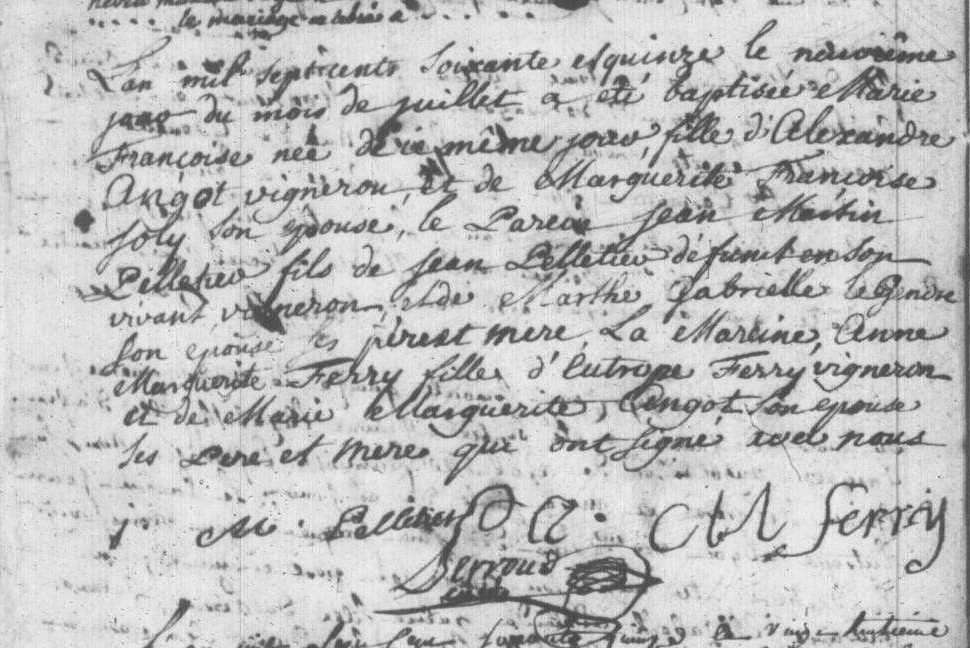 le mariage
L'an mil sept cents soixante et quinze le neuvieme
jour du mois de juillet a eté baptisée Marie
Françoise née de ce même jour, fille d'Alexandre
Angot vigneron, et de Marguerite Françoise
joly son epouse, le Parein jean Martin
Pelletier fils de jean Pelletier défunt en son
vivant vigneron, et de Marthe Gabrielle le Gendre
son epouse ses père et mere, La Mareine, Anne
Marguerite Ferry fille d'Eutrope Ferry vigneron
et de Marie Marguerite, Angot son epouse
ses Pere et mere qui ont signé avec nous
j M Pelletier A M ferry